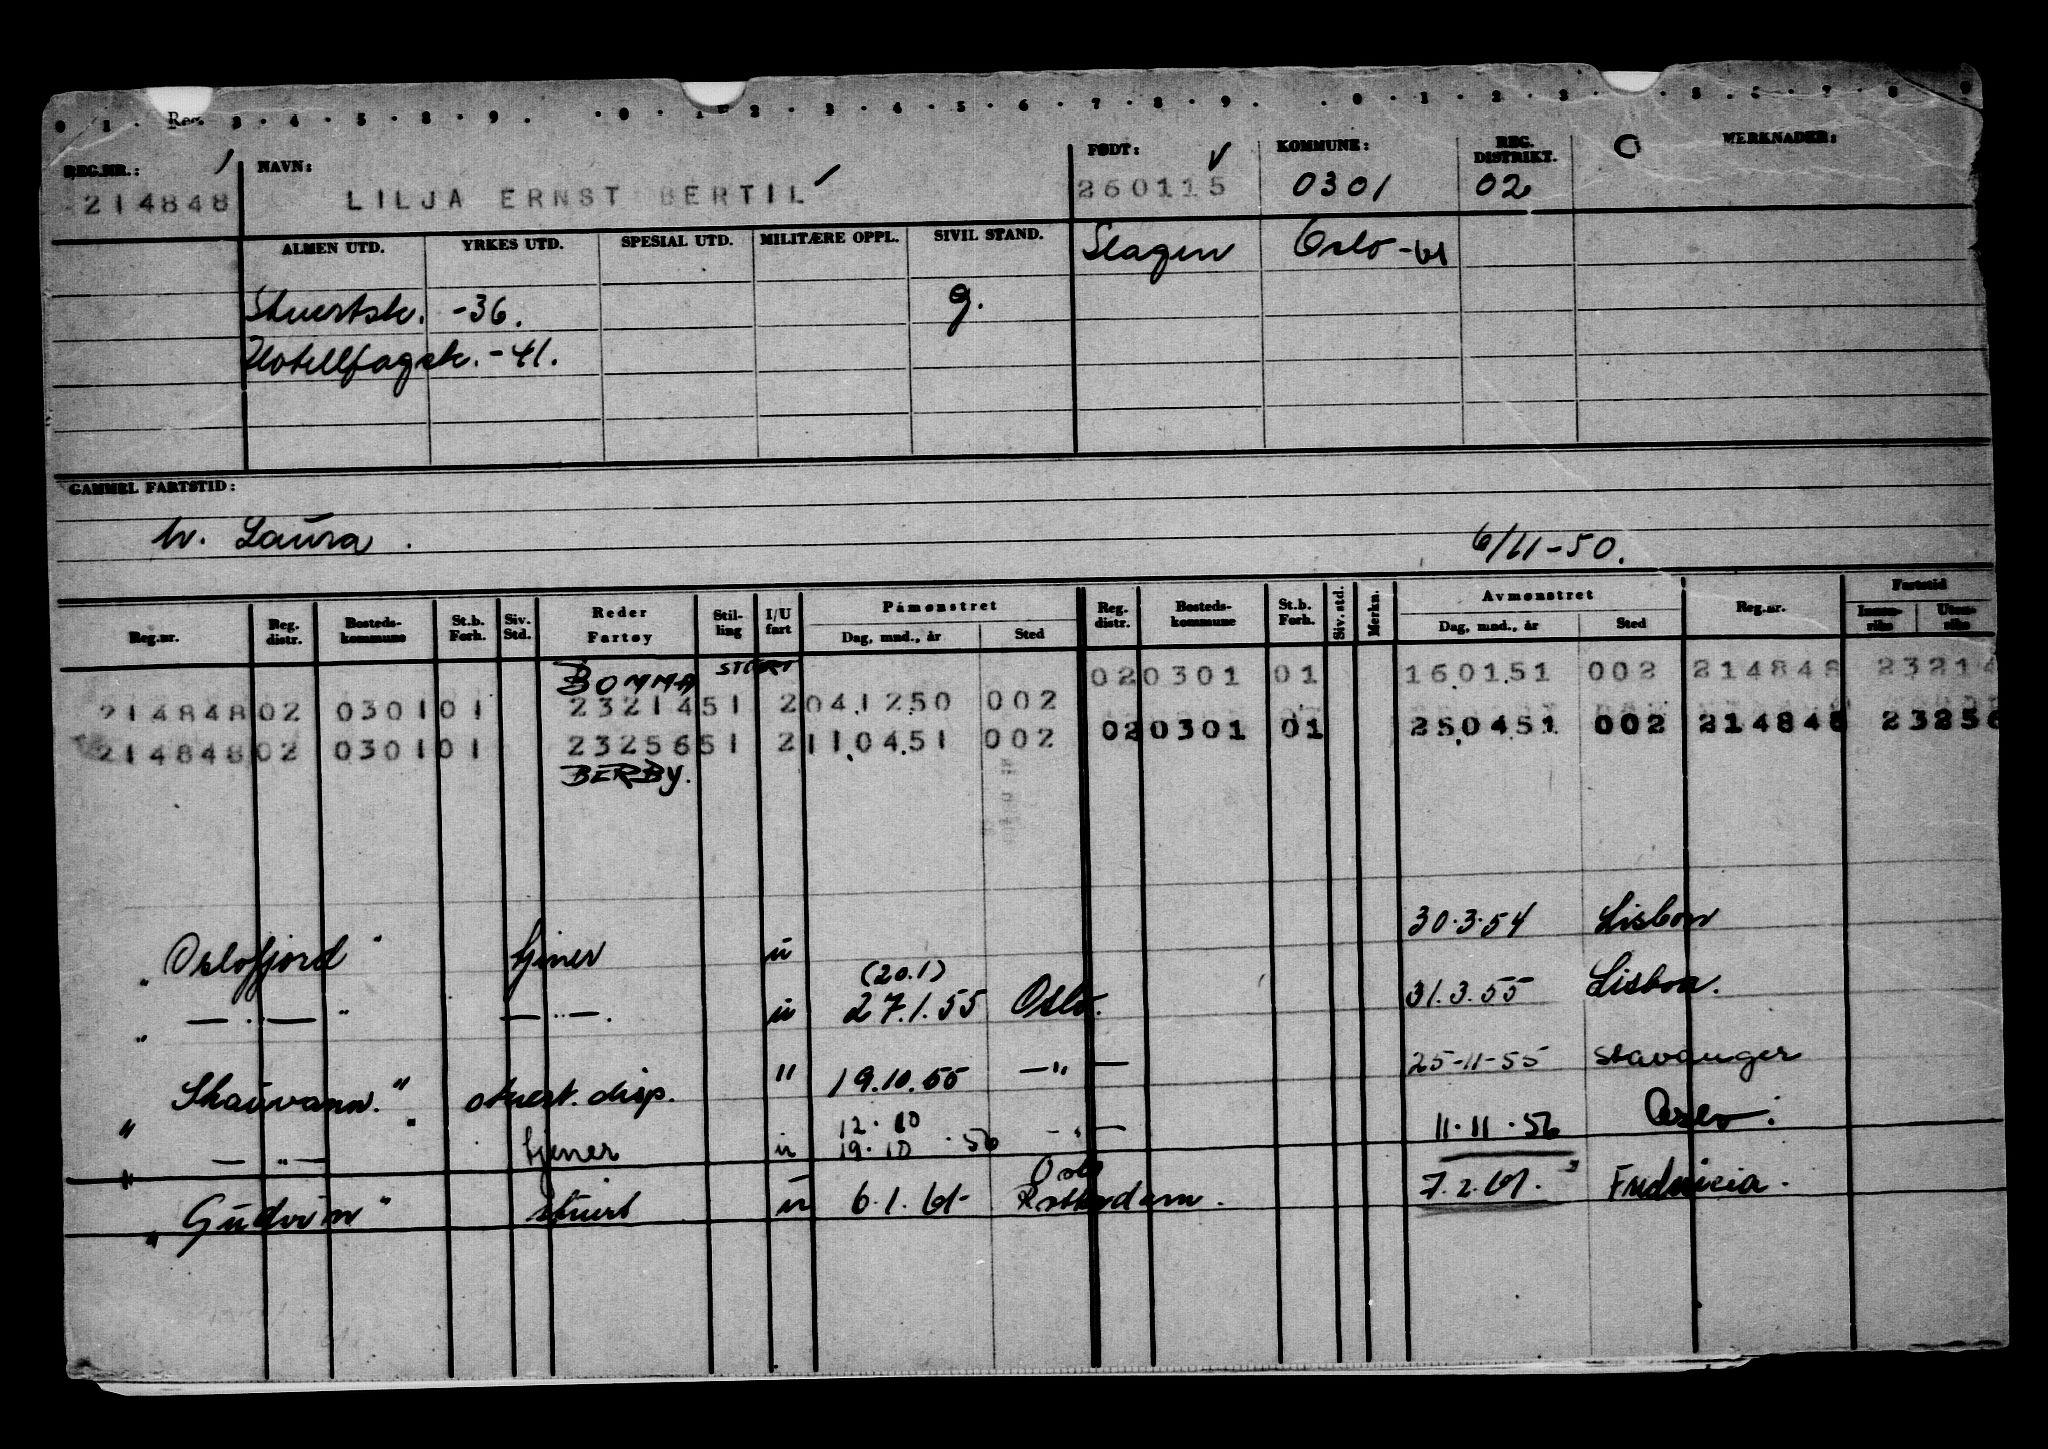 0 1 Reg. 3 4 5 8 9 0 1 2 3 4 5 6 7 8 9 0 1 2 3 5 6 7 8 9
REG.NR.: NAVN: FØDT: KOMMUNE: REG. DISTRIKT. MERKNADER:
214848 LILJA ERNST BERTIL 260115 0301 02
ALMEN UTD. YRKES UTD. SPESIAL UTD. MILITÆRE OPPL. SIVIL STAND. Slagen Oslo -61
Stuertsk. -36. g.
Hotellfagsk. -41.
GAMMEL FARTSTID:
h. Laura. 6/11-50.
Reg.nr. Reg. distr. Bosteds-kommune St.b. Forh. Siv. Std. Reder Fartøy Stil-ling I/U fart Påmønstret Dag, mnd., år Sted Reg. distr. Bosteds-kommune St.b. Forh. Siv. std. Merkn. Avmønstret Dag, mnd., år Sted Reg.nr. Fartstid Innen-riks Uten-riks
BOMMA STUERT 02 0301 01 160151 002 214848 23214
214848 02 0301 01 23214 51 2 041250 002
214848 02 0301 01 23256 51 2 110451 002 02 0301 01 250451 002 214848 23256
BERBY.
"Oslofjord" tjener u 30.3.54 Lisbon
" — " — " — " — . u (20.1) 27.1.55 Oslo. 31.3.55 Lisboa.
"Skauvann." stuert. disp. " 19.10.55 — " — 25-11-55 Stavanger
— " — tjener u 12.10 19.10.56 — " — 11.11.56 Oslo.
"Gudrun" stuert u 6.1.61 Oslo Rotterdam. 7.2.61. Fredericia.